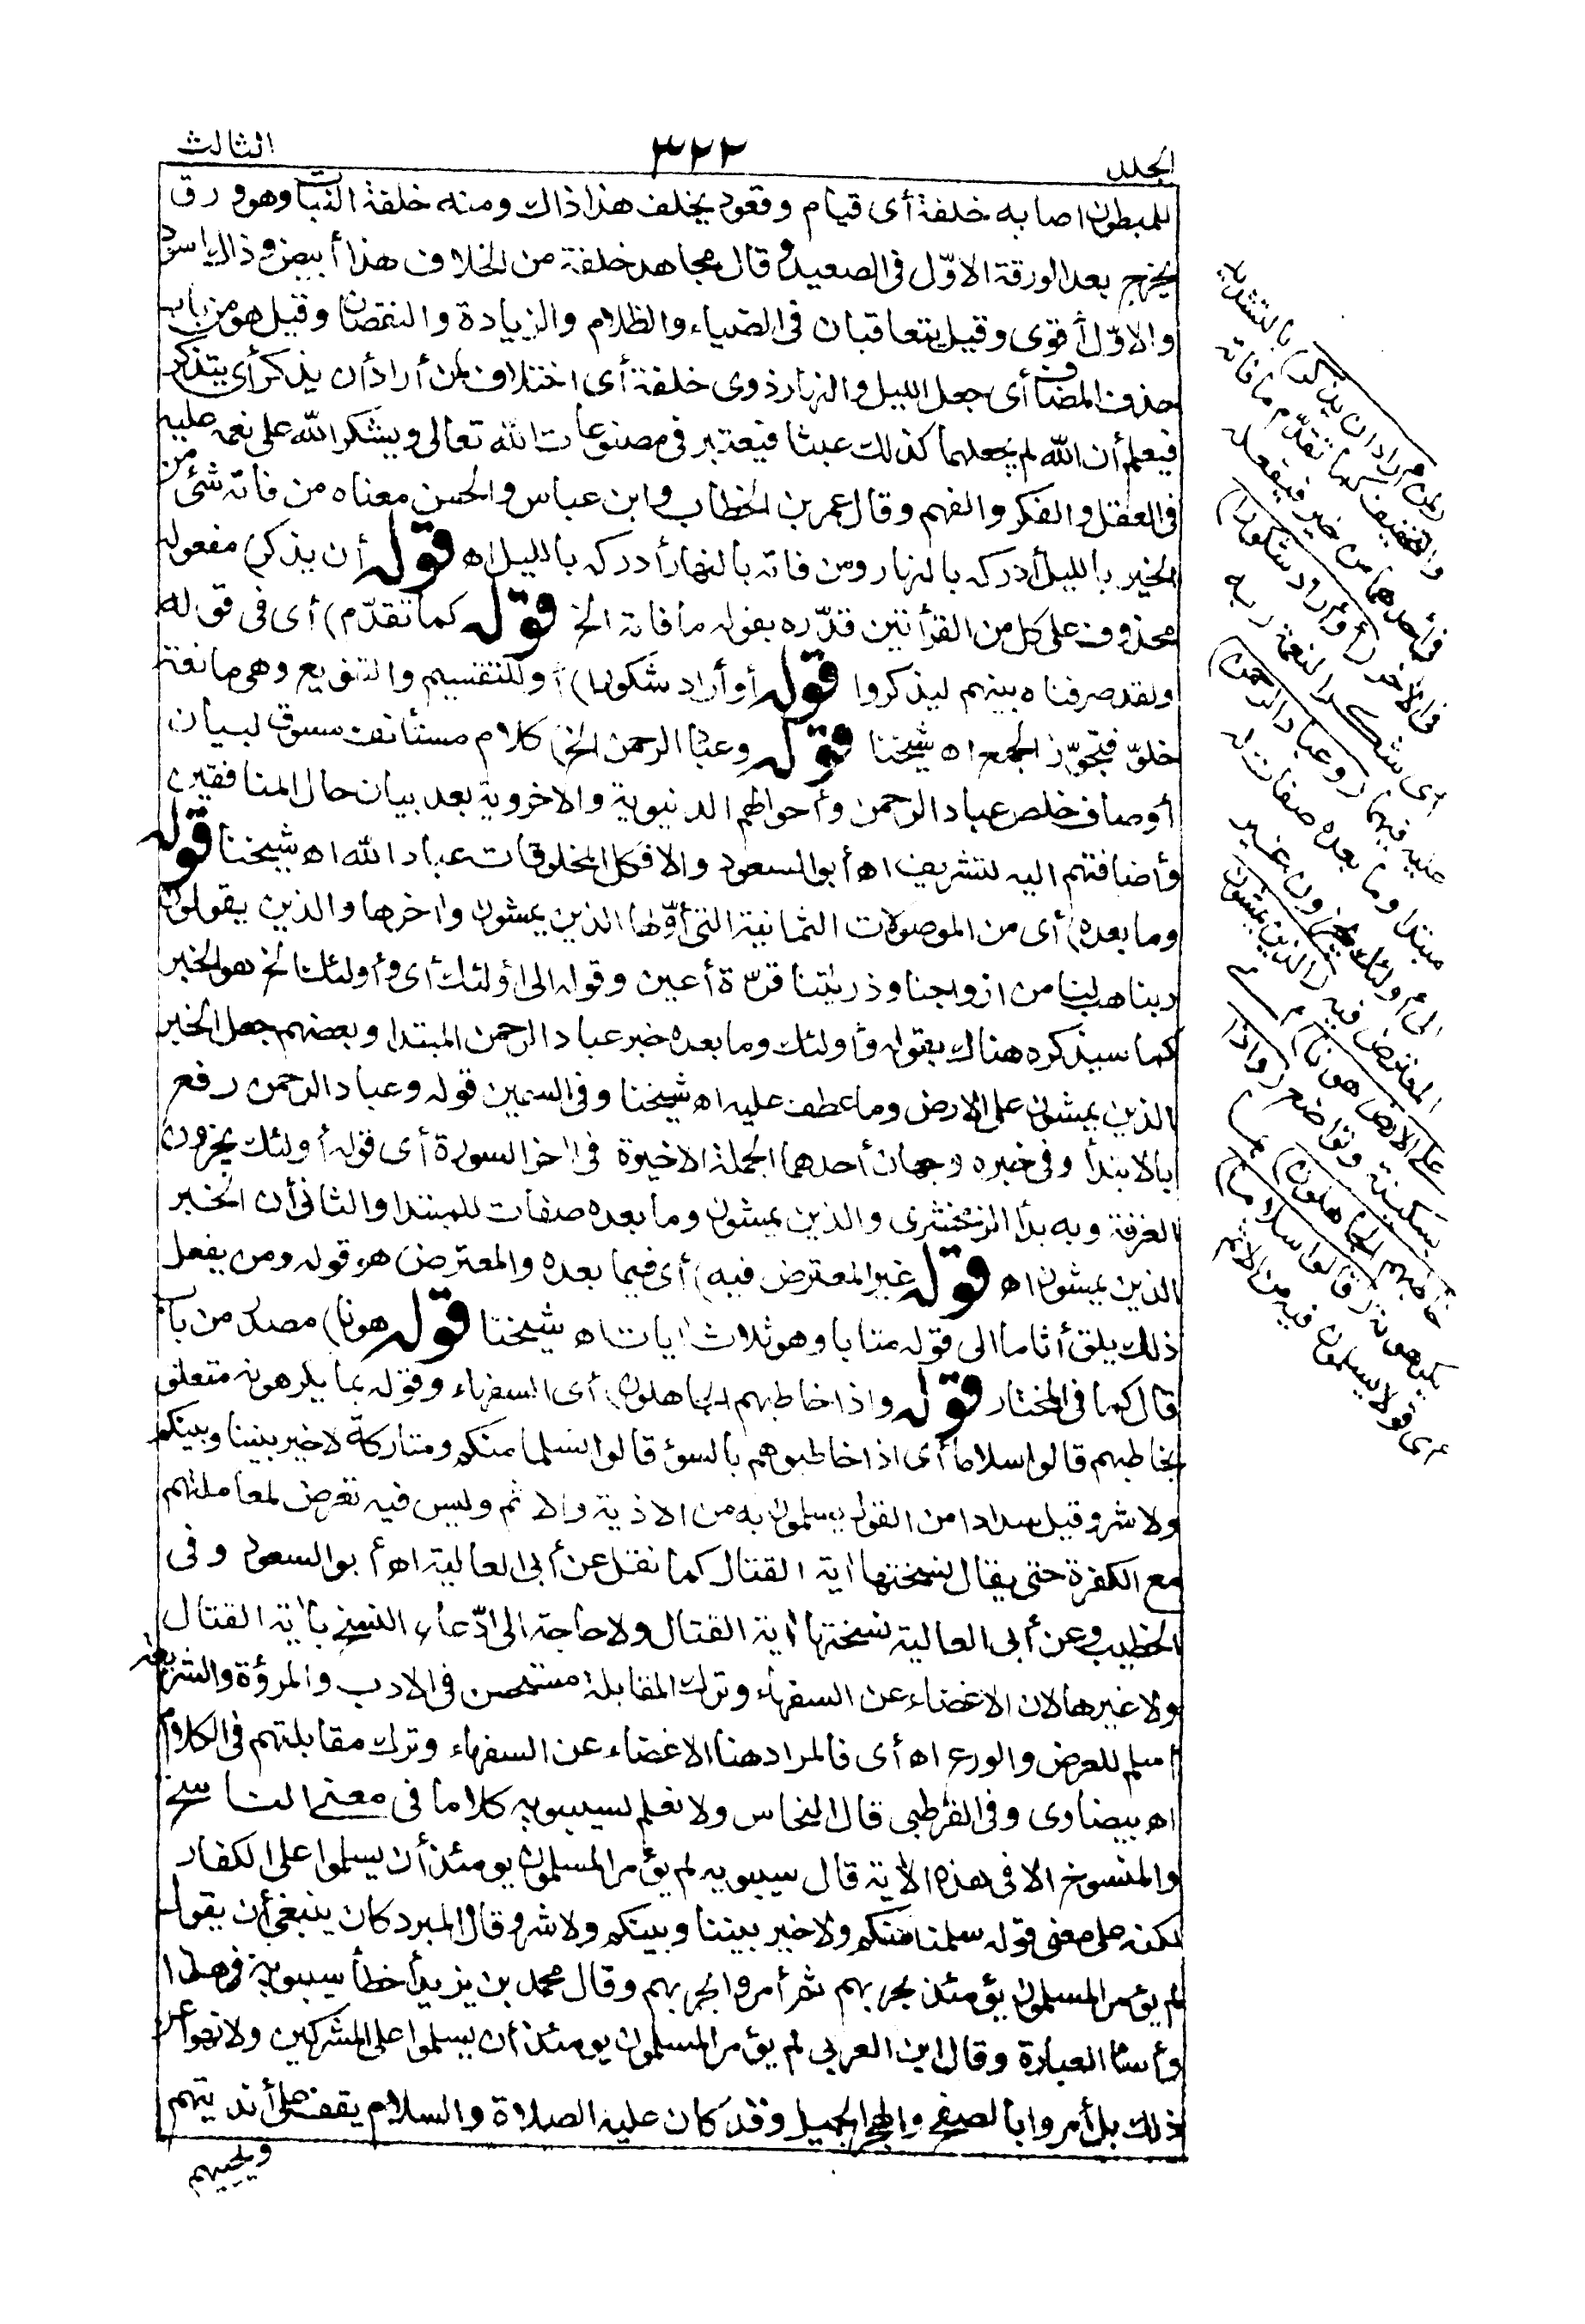 المجلد
٣٢٢
الثالث
للمبطون اصابه خلفة أى قيام وقعود يخلف هذا ذاك ومنه خلفة النبات وهو ورق
يخرج بعد الورقة الاوّل فى الصعيد وقال مجاهد خلفة من الخلاف هذا أبيض وذاك اسود
والاوّل أقوى وقيل يتعاقبان فى الضياء والظلام والزيادة والنقصان وقيل هو من باب
حذف المضاف أى جعل الليل والنهار ذوى خلفة أى اختلاف لمن أراد أن يذكر أى يتذكر
فيعلم أن الله لم يجعلهما كذلك عبثا فيعتبر فى مصنوعات الله تعالى ويشكر الله على نعمه عليه
فى العقل والفكر والفهم وقال عمر بن الخطاب وابن عباس والحسن معناه من فاته شئ من
الخير بالليل أدركه بالنهار ومن فاته بالنهار أدركه بالليل اه قوله أن يذكر) مفعوله
محذوف على كل من القرأتين قدّره بقوله ما فاته الخ قوله كما تقدّم) أى فى قوله
ولقد صرفناه بينهم ليذكروا قوله أو أراد شكورا) أو للتقسيم والتنويع وهى مانعة
خلوّ فتجوّز الجمع اه شيخنا قوله وعباد الرحمن الخ) كلام مستأنف مسوق لبيان
أوصاف خلص عباد الرحمن وأحوالهم الدنيوية والاخروية بعد بيان حال المنافقين
وأضافتهم اليه لتشريف اه أبو السعود والا فكل المخلوقات عباد الله اه شيخنا قوله
وما بعده) أى من الموصولات الثمانية التى أوّلها الذين يمشون واخرها والذين يقولون
ربنا هب لنا من ازواجنا وذريتنا قرّة أعين وقوله الى أولئك أى وأولئك الخ هو الخبر
كما سيذكره هناك بقوله وأولئك وما بعده خبر عباد الرحمن المبتدا وبعضهم جعل الخبر
الذين يمشون على الارض وما عطف عليه اه شيخنا وفى السمين قوله وعباد الرحمن رفع
بالابتدأ وفى خبره وجهان أحدهما الجملة الاخيرة فى اخر السورة أى قوله أولئك يجزون
الغرفة وبه بدأ الزمخشرى والذين يمشون وما بعده صفات للمبتدا والثانى أن الخبر
الذين يمشون اه قوله غير المعترض فيه) أى فيما بعده والمعترض هو قوله ومن يفعل
ذلك يلق أثاما الى قوله متابا وهو ثلاث ايات اه شيخنا قوله هونا) مصدر من باب
قال كما فى المختار قوله واذا خاطبهم الجاهلون) أى السفهاء وقوله بما يكرهونه متعلق
بخاطبهم قالوا سلاما أى اذا خاطبوهم بالسوٓء قالوا تسلما منكم ومتاركة لا خير بيننا وبينكم
ولا شر وقيل سدادا من القول يسلمون به من الاذية والاثم وليس فيه تعرض لمعاملتهم
مع الكفرة حتى يقال نسختها اية القتال كما نقل عن أبى العالية اه أبو السعود وفى
الخطيب وعن أبى العالية نسختها اية القتال ولا حاجة الى ادّعاء النسخ باٰية القتال
ولا غيرها لان الاغضاء عن السفهاء وترك المقابلة مستحسن فى الادب والمرؤة والشريعة
اسلم للعرض والورع اه أى فالمراد هنا الاغضاء عن السفهاء وترك مقابلتهم فى الكلام
اه بيضاوى وفى القرطبى قال النحاس ولا نعلم لسيبويه كلاما فى معنى الناسخ
والمنسوخ الا فى هذه الاٰية قال سيبويه لم يؤمر المسلمون يومئذ أن يسلموا على الكفار
لكنه على معنى قوله سلمنا منكم ولا خير بيننا وبينكم ولا شر وقال المبرد كان ينبغى أن يقول
لم يؤمر المسلمون يومئذ بحربهم ثم أمروا بحربهم وقال محمد بن يزيد أخطأ سيبويه فى هذا
وأساء العبارة وقال ابن العربى لم يؤمر المسلمون يومئذ أن يسلموا على المشركين ولا نهوا عن
ذلك بل أمروا بالصفح والهجر الجميل وقد كان عليه الصلاة والسلام يقف على أنديتهم
ويحييهم
(لمن أراد أن يذكر) بالتشديد
والتخفيف كما تقدّم ما فاته
فى أحدهما من خير فيفعله
فى الاخر (أو أراد شكورا)
أى شكرا لنعمة ربه
عليه فيهما (وعباد الرحمن)
مبتدا وما بعده صفات له
الى أولئك يجزون غير
المعترض فيه (الذين يمشون
على الارض هونا) أى
بسكينة وتواضع (واذا
خاطبهم الجاهلون) بما
يكرهونه (قالوا سلاما)
أى قولا يسلمون فيه من الاثم